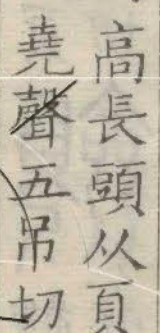 高長頭从頁
堯聲五弔切